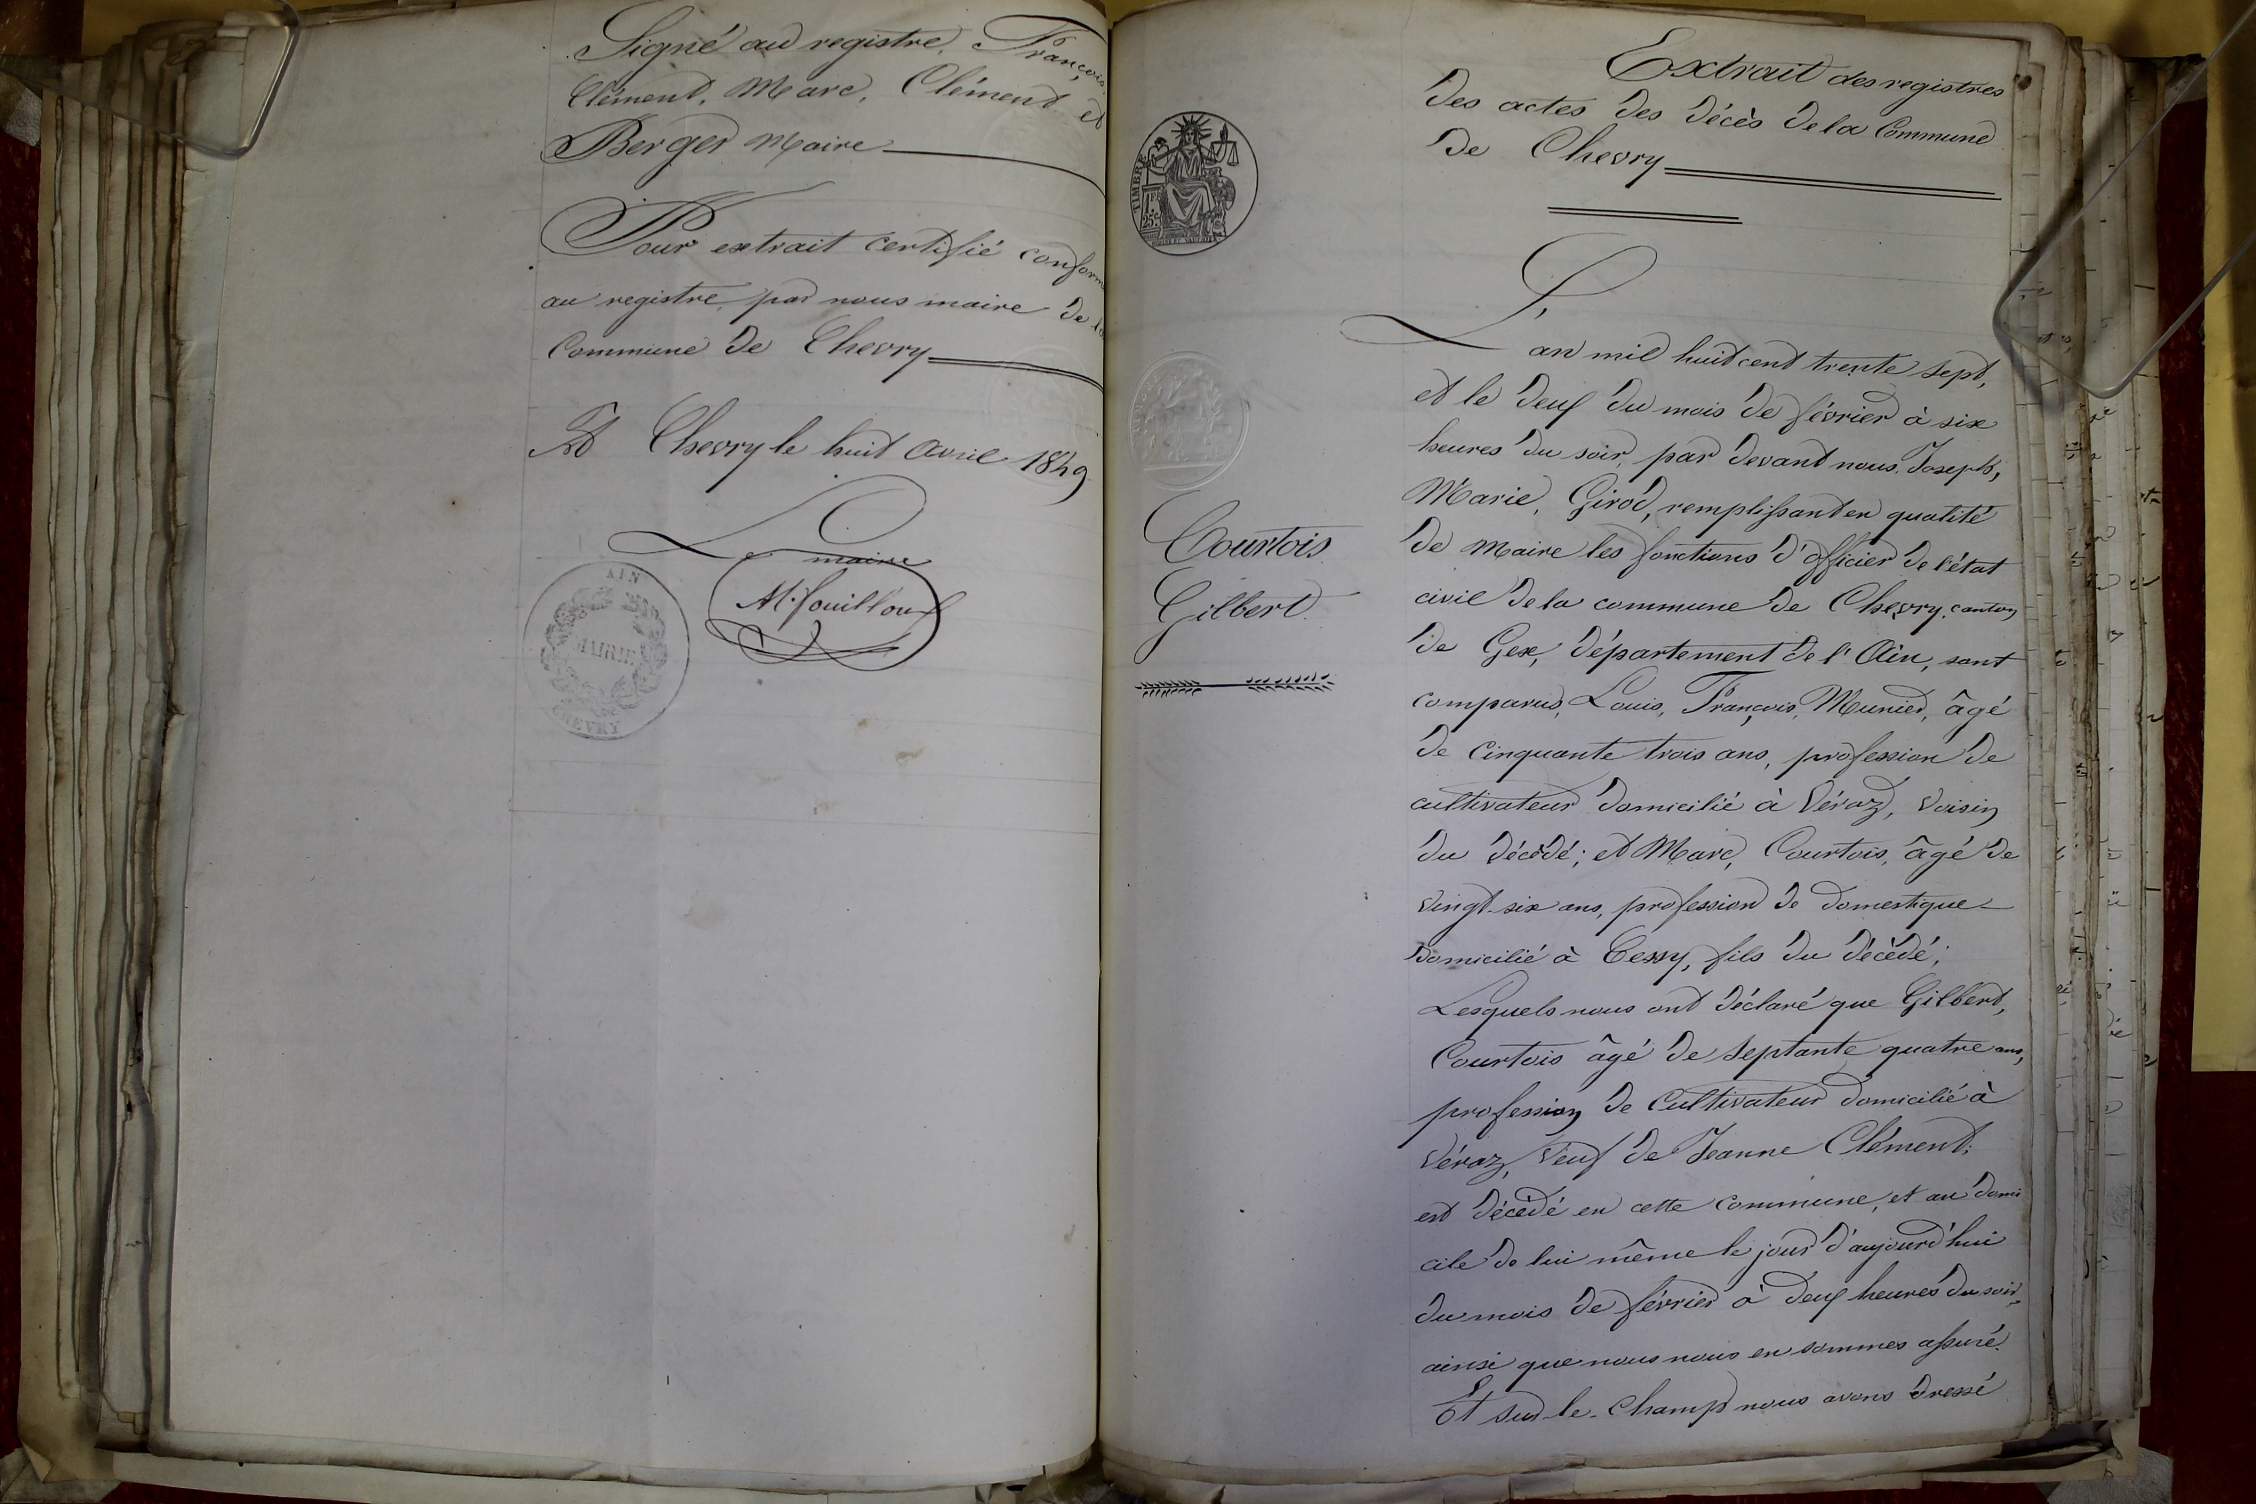 Signé au registre, François,
Clément, Marc, Clément et
Berger Maire
Pour extrait certifié conforme
au registre, par nous maire de la
Commune de Chevry
A Chevry le huit avril 1849
Le
maire
M. fouilloux
AIN
MAIRIE
CHEVRY
Extrait des registres
des actes des décès de la Commune
de Chevry
TIMBRE
1 F.
25 c.
Courtois
Gilbert.
L'an mil huit cent trente sept,
et le deux du mois de février à six
heures du soir, par devant nous Joseph,
Marie, Girod, remplissant en qualité
de maire les fonctions d'officier de l'état
civil de la commune de Chevry, canton
de Gex, département de l'Ain, sont
comparus, Louis, François, Munier, âgé
de cinquante trois ans, profession de
cultivateur domicilié à Véraz, voisin
du décédé; et Marc, Courtois, âgé de
vingt-six ans, profession de domestique
domicilié à Cessy, fils du décédé;
Lesquels nous ont déclaré que Gilbert,
Courtois âgé de septante quatre ans,
profession de Cultivateur domicilié à
Véraz, veuf de Jeanne Clément;
est décédé en cette commune, et au domi
cile de lui même le jour d'aujourd'hui
du mois de février à deux heures du soir,
ainsi que nous nous en sommes assuré.
Et sur-le-champ nous avons dressé